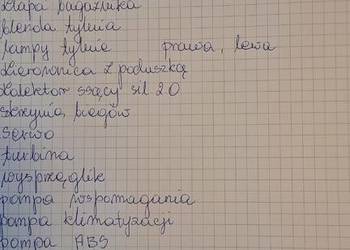 klapa bagażnika
blenda tylnia
lampy tylnie prawa, lewa
kierownica z poduszką
kolektor ssący sil 2.0
skrzynia biegów
serwo
turbina
wysprzęglik
pompa wspomagania
pompa klimatyzacji
pompa ABS